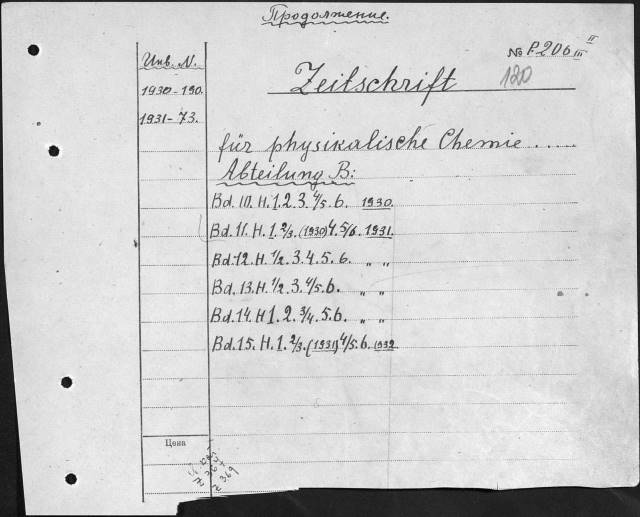 Продолжение.
Инв. N. № P.206 II III
Zeitschrift 120
1930-190.
1931-73.
für physikalische Chemie.....
Abteilung B:
Bd.10.H.1.2.3.4/5.6. 1930.
Bd.11.H.1.2/3.(1930)4.5/6.1931.
Bd.12.H.1/2.3.4.5.6. „ „
Bd.13.H.1/2.3.4/5.6. „ „
Bd.14.H1.2.3/4.5.6. „ „
Bd.15.H.1.2/3.(1931)4/5.6.1932
Цена